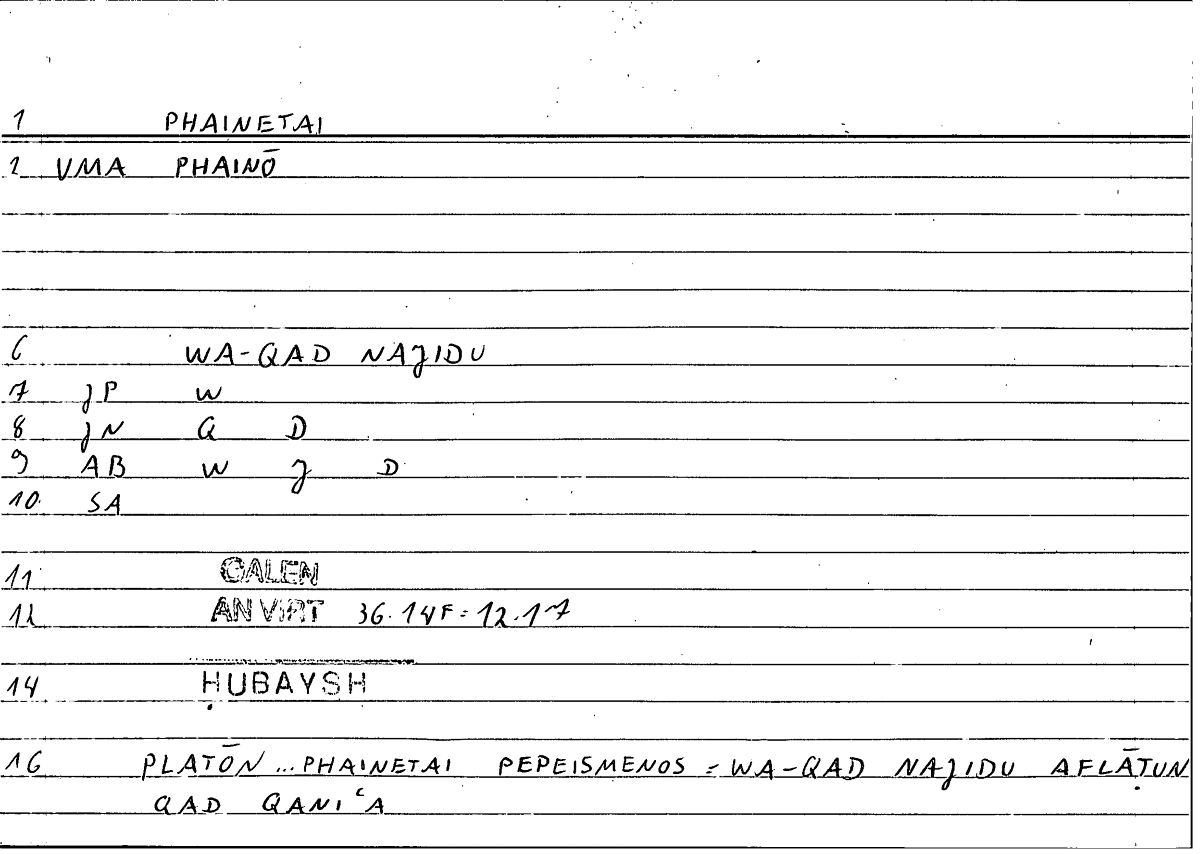 1 PHAINETAI
2 VMA PHAINŌ
6 WA-QAD NAJIDU
7 JP W
8 JN Q D
9 AB W J D
10. SA
11 GALEN
12 AN VIRT 36.14F = 12.17
14 ḤUBAYSH
16 PLATŌN ... PHAINETAI PEPEISMENOS = WA-QAD NAJIDU AFLĀṬUN
QAD QANIʿA